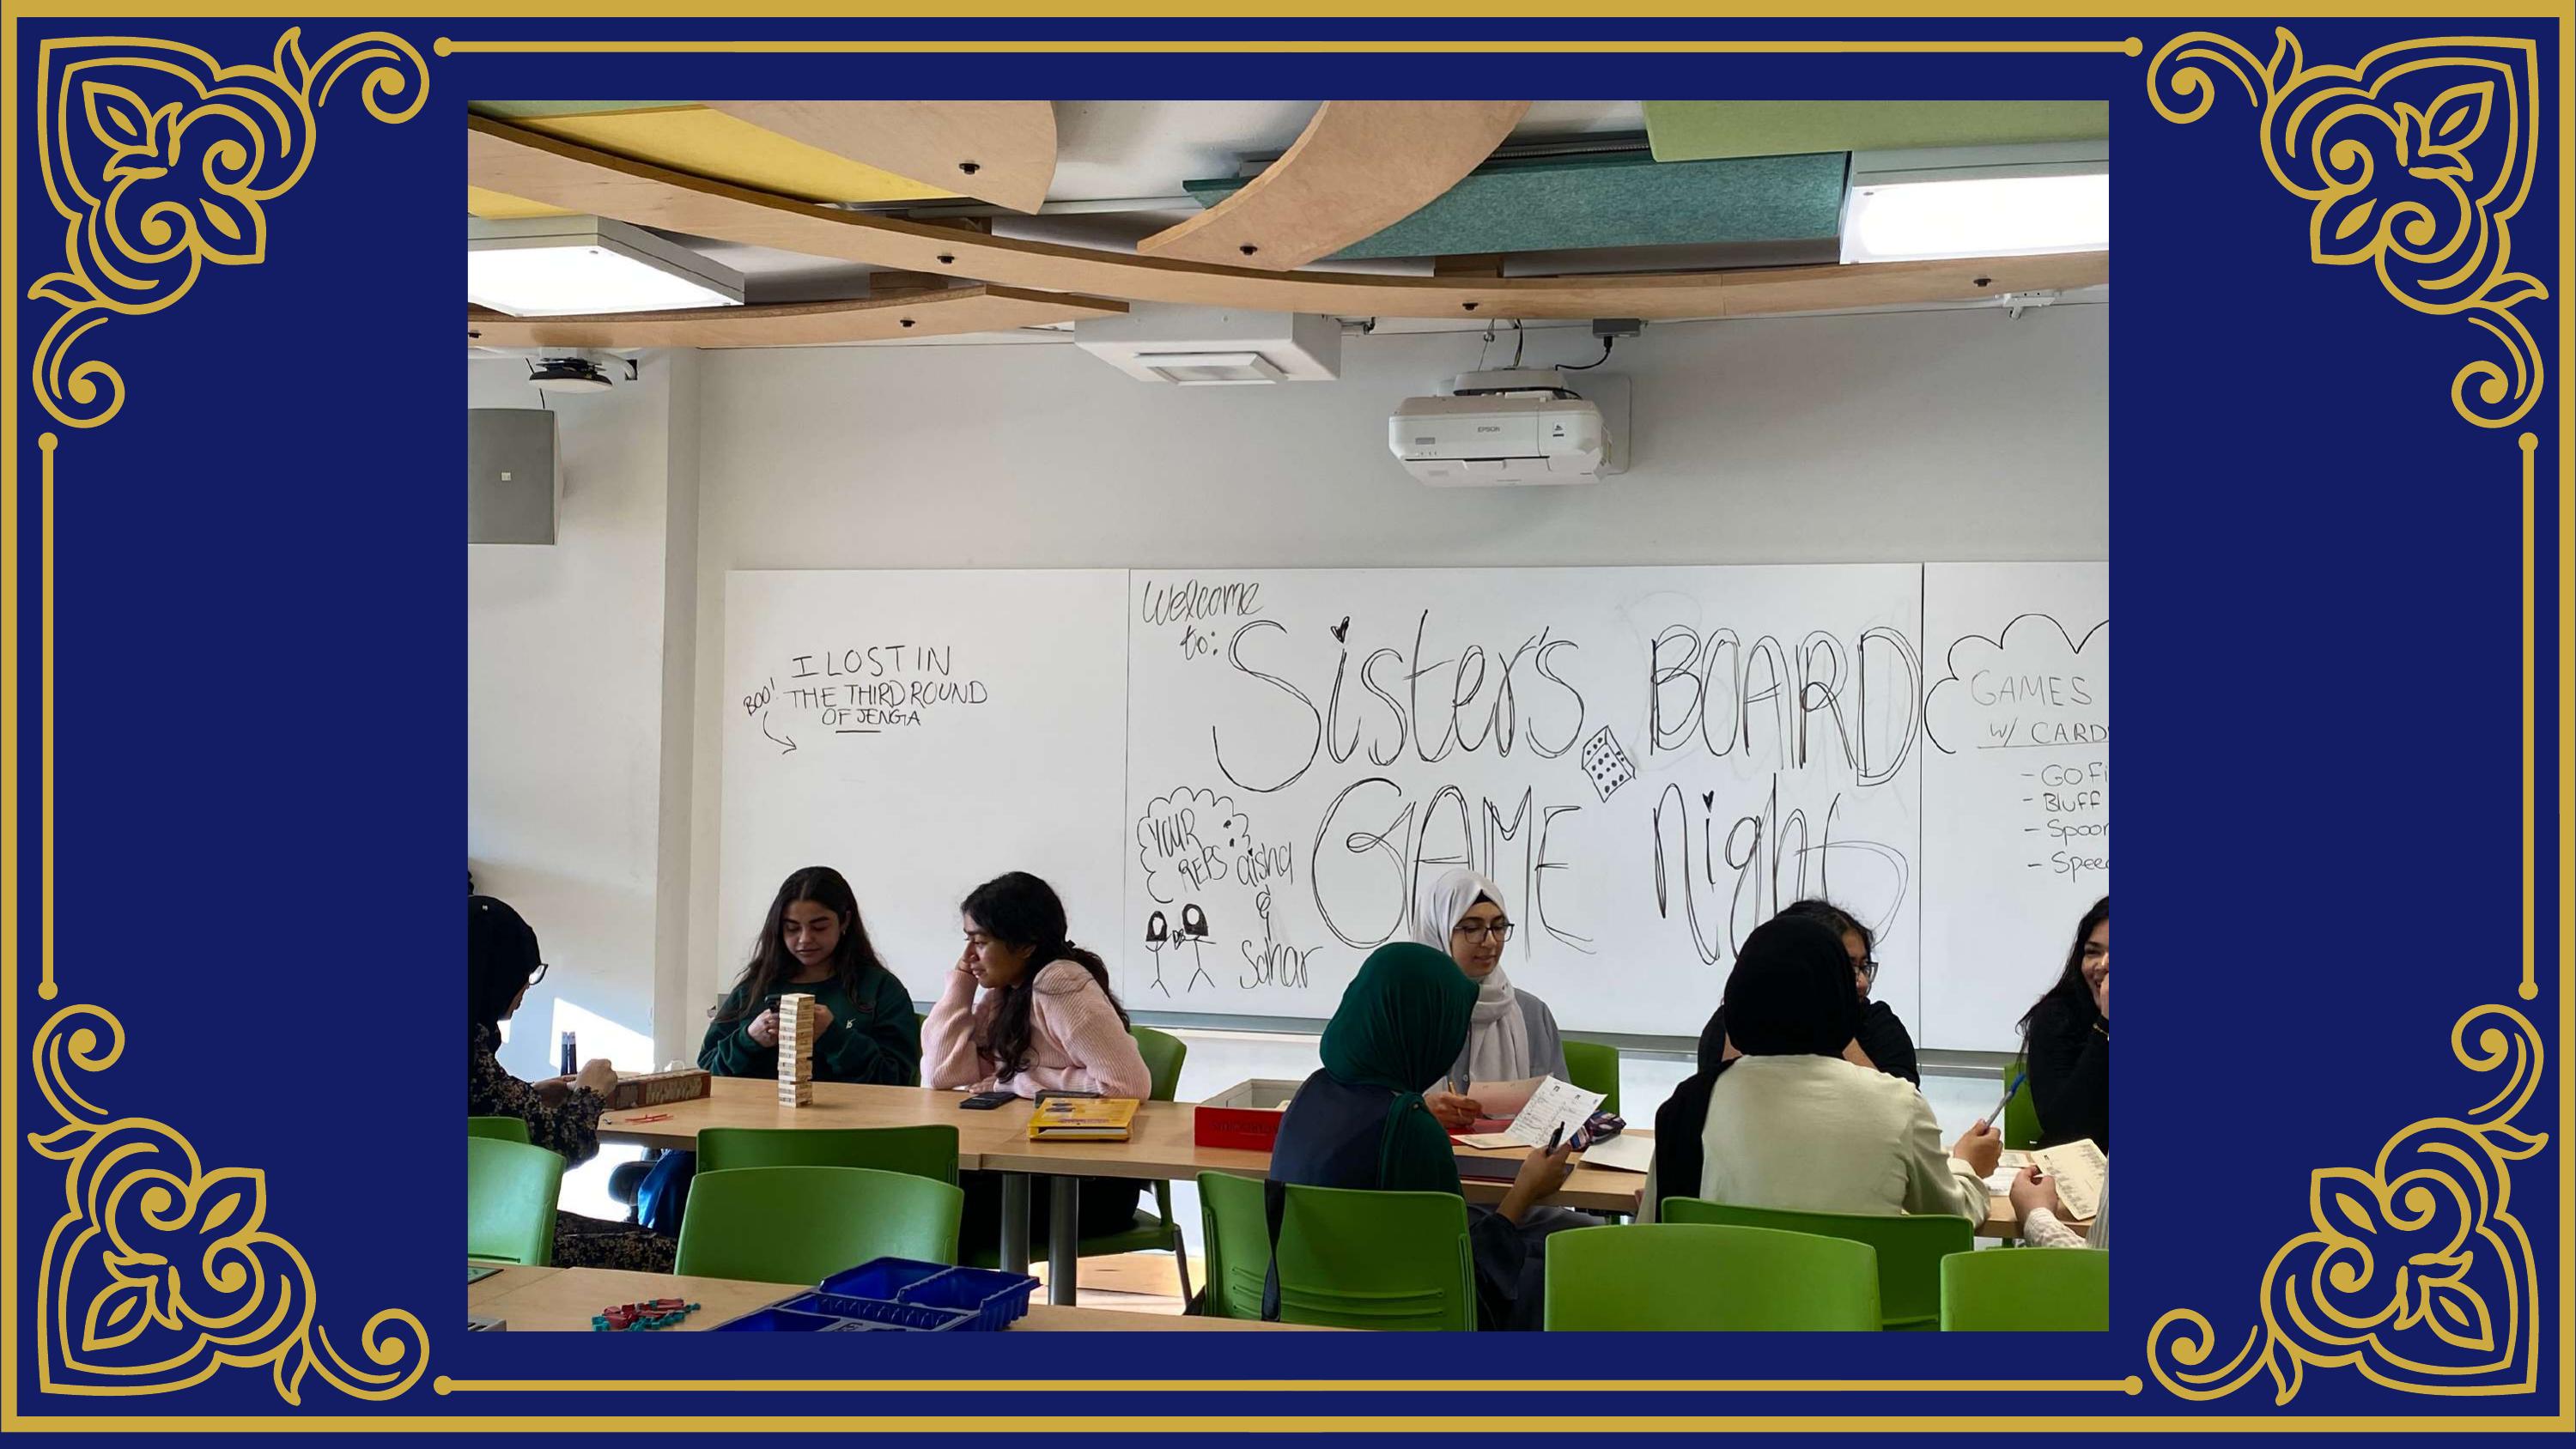 EPSON
I LOST IN
BOO! THE THIRD ROUND
OF JENGA
Welcome
to:
Sister's BOARD
GAME Night
YOUR
REPS
aisha
&
Sahar
GAMES
W/ CARD
- GO Fi
- Bluff
- Spoor
- Speed